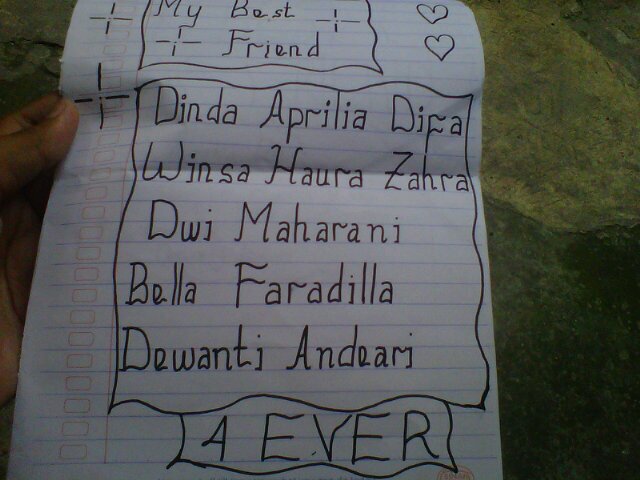 My Best
Friend
Dinda Aprilia Difa
Winsa Haura Zahra
Dwi Maharani
Bella Faradilla
Dewanti Andeari
4 EVER